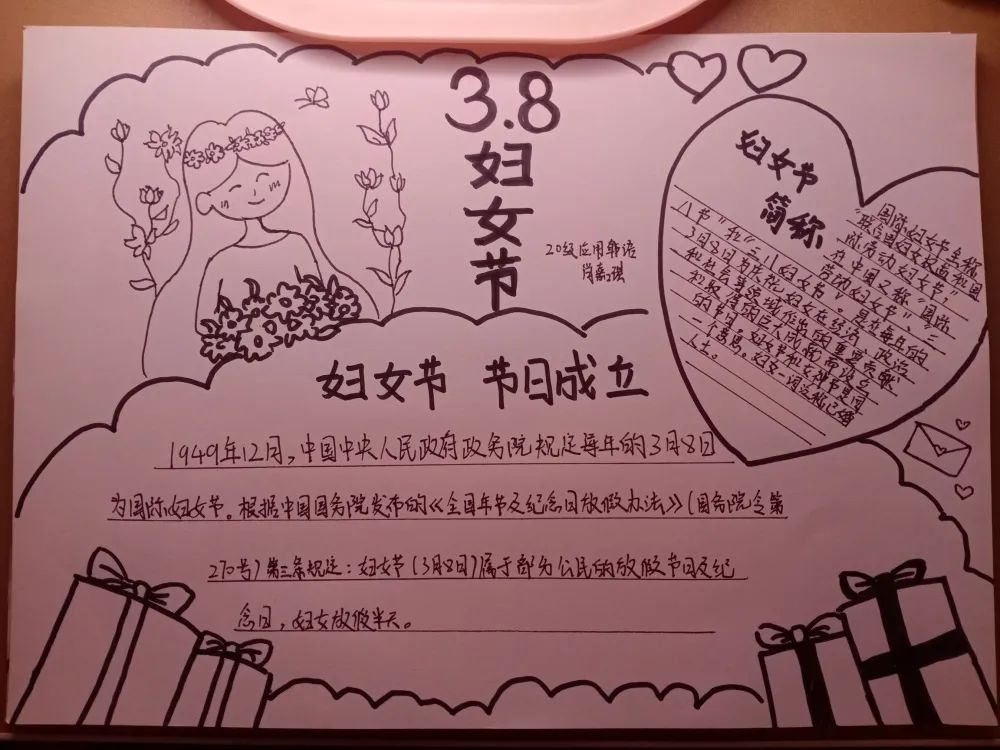 3.8
妇
女
节
20级应用韩语
妇女节
简称
国际妇女节全称
"联合国妇女权益和国
际劳动妇女节",
在中国又称"国际
劳动妇女节"、"三
八节"和"三八妇女节"。是在每年的
3月8日为庆祝妇女在经济、政治
和社会等领域作出的重要贡献
和取得的巨大成就而设立
的节日。妇女节和女神节是同
一个意思。妇女一词泛称已婚
人士。
妇女节 节日成立
1949年12月,中国中央人民政府政务院规定每年的3月8日
为国际妇女节。根据中国国务院发布的《全国年节及纪念日放假办法》(国务院令第
270号)第三条规定:妇女节(3月8日)属于部分公民的放假节日及纪
念日,妇女放假半天。